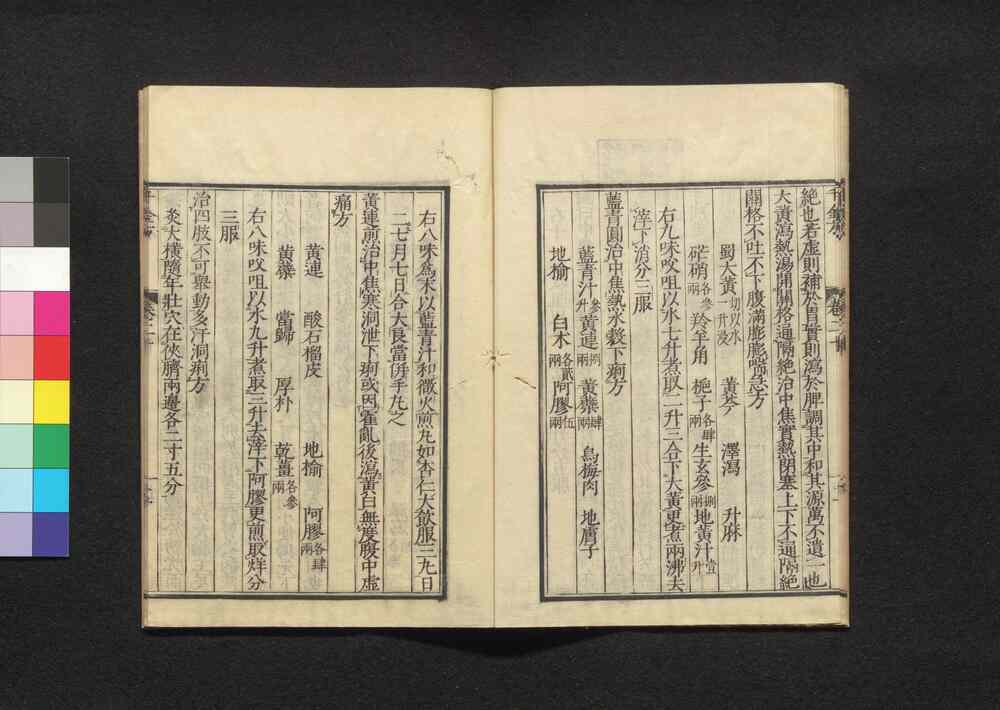 絶也若虛則補於胃實則瀉於脾調其中和其源萬不遺一也
大黃瀉熱湯開關格通隔絶治中焦實熱閉塞上下不通隔絶
關格不吐不下腹滿膨膨喘急方
蜀大黃切以水一升浸 黃芩 澤瀉 升麻
芒硝各參兩 羚羊角 梔子各肆兩 生玄參捌兩 地黃汁壹升
右九味㕮咀以水七升煮取二升三合下大黃更煮兩沸去
滓下消分三服
藍青圓治中焦熱水穀下痢方
藍青汁參升 黃連捌兩 黃蘗肆兩 烏梅肉 地膚子
地榆 白朮各貳兩 阿膠伍兩
右八味爲末以藍青汁和微火煎丸如杏仁大飲服三丸日
二七月七日合大良當併手丸之
黃連煎治中焦寒洞泄下痢或因霍亂後瀉黃白無度腹中虛
痛方
黃連 酸石榴皮 地榆 阿膠各肆兩
黃蘗 當歸 厚朴 乾薑各參兩
右八味㕮咀以水九升煮取三升去滓下阿膠更煎取烊分
三服
治四肢不可舉動多汗洞痢方
灸大橫隨年壯穴在俠臍兩邊各二寸五分